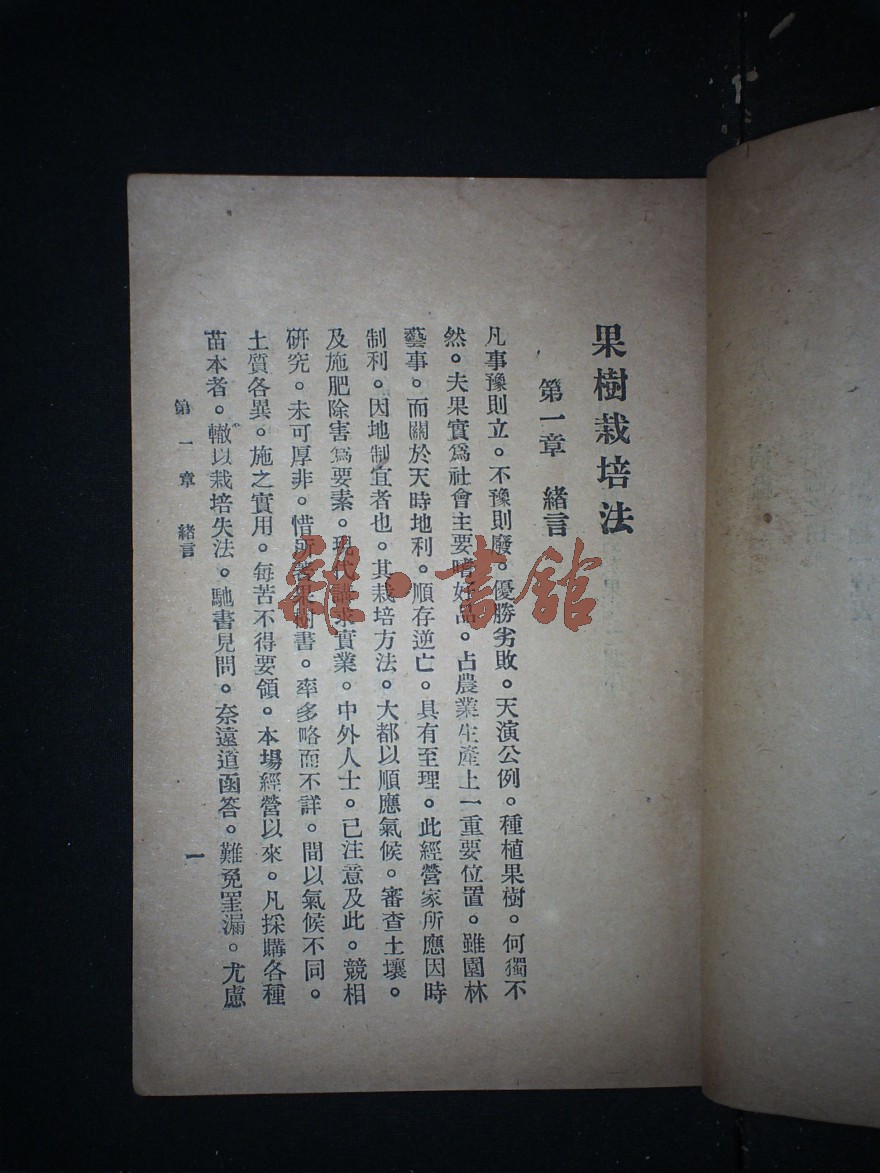 果樹栽培法
第一章 緒言
凡事豫則立。不豫則廢。優勝劣敗。天演公例。種植果樹。何獨不
然。夫果實爲社會主要嗜好品。占農業生產上一重要位置。雖園林
藝事。而關於天時地利。順存逆亡。具有至理。此經營家所應因時
制利。因地制宜者也。其栽培方法。大都以順應氣候。審查土壤。
及施肥除害爲要素。現代講求實業。中外人士。已注意及此。競相
研究。未可厚非。惜所著果樹書。率多略而不詳。間以氣候不同。
土質各異。施之實用。每苦不得要領。本場經營以來。凡採購各種
苗本者。轍以栽培失法。馳書見問。奈遠道函答。難免罣漏。尤慮
第一章 緒言
一
雜·書館